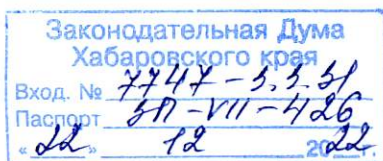 Законодательная Дума
Хабаровского края
Вход. № 7747-3.3.31
Паспорт ЗП-VII-426
«22» 12 2022 г.